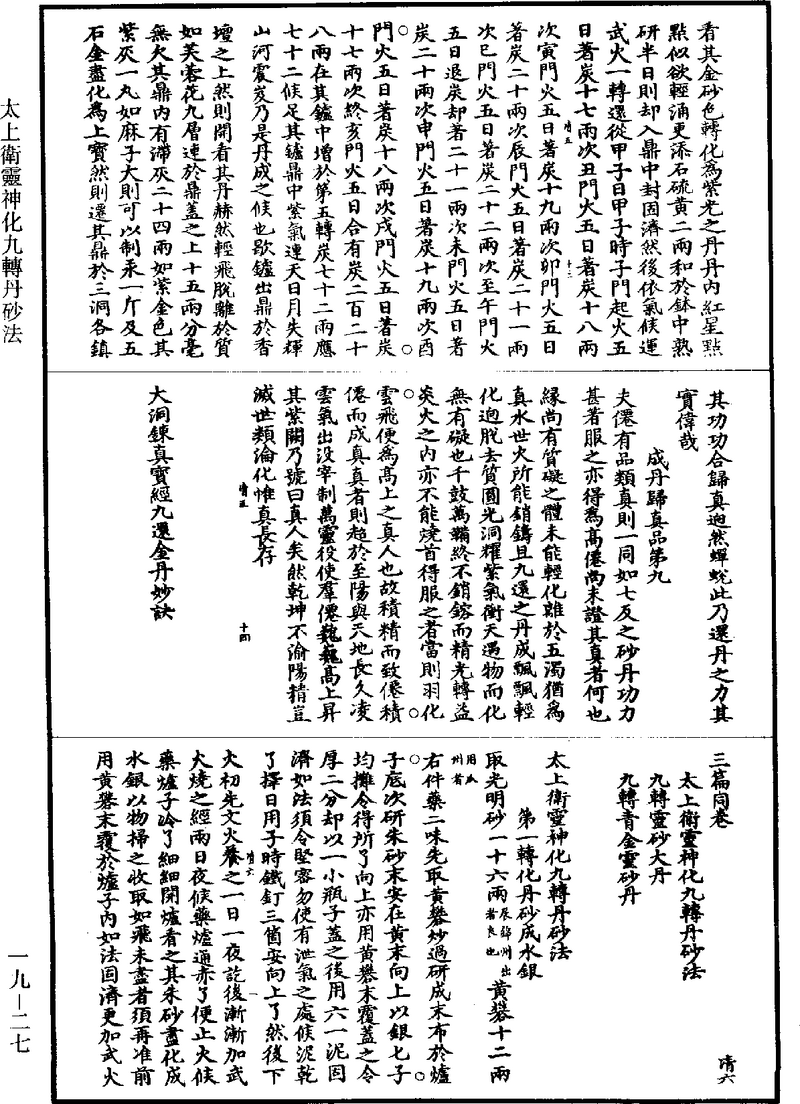 看其金砂色轉化為紫光之丹丹內紅星點
點似欲輕涌更添石硫黃二兩和於鉢中熟
研半日則却入鼎中封固濟然後依氣候運
武火一轉還從甲子日甲子時子門起火五
日著炭十七兩次丑門火五日著炭十八兩
清五
十三
次寅門火五日著炭十九兩次卯門火五日
著炭二十兩次辰門火五日著炭二十一兩
次巳門火五日著炭二十二兩次至午門火
五日退炭却著二十一兩次未門火五日著
炭二十兩次申門火五日著炭十九兩次酉
門火五日著炭十八兩次戌門火五日著炭
十七兩次終亥門火五日合有炭二百二十
八兩在其鑪中增於第五轉炭七十二兩應
七十二候足其鑪鼎中紫氣連天日月失輝
山河震岌乃是丹成之候也歇鑪出鼎於香
壇之上然則開看其丹赫然輕飛脫離於質
如芙蓉花九層連於鼎蓋之上十五兩分毫
無欠其鼎內有滯灰二十四兩如紫金色其
紫灰一丸如麻子大則可以制汞一斤及五
石金盡化為上寶然則還其鼎於三洞各鎮
其功功合歸真迥然蟬蛻此乃還丹之力其
實偉哉
成丹歸真品第九
夫僊有品類真則一同如七反之砂丹功力
甚著服之亦得為高僊尚未證其真者何也
緣尚有質礙之體未能輕化雖於五濁猶為
真水世火所能銷鑄且九還之丹成飄飄輕
化迥脫去質圓光洞耀紫氣衝天遇物而化
無有礙也千鼓萬鞴終不銷鎔而精光轉益
炎火之內亦不能燒首得服之者當則羽化
雲飛便為高上之真人也故積精而致僊積
僊而成真真者則超於至陽與天地長久凌
雲氣出沒宰制萬靈役使羣僊巍巍高上昇
其紫闕乃號曰真人矣然乾坤不渝陽精豈
滅世類淪化惟真長存
清五
十四
大洞鍊真寶經九還金丹妙訣
三篇同卷
清六
太上衛靈神化九轉丹砂法
九轉靈砂大丹
九轉青金靈砂丹
太上衛靈神化九轉丹砂法
第一轉化丹砂成水銀
取光明砂一十六兩辰錦州出者良也黃礬十二兩
用瓜州者
右件藥二味先取黃礬炒過研成末布於爐
子底次研朱砂末安在黃末向上以銀匕子
均攤令得所了向上亦用黃礬末覆蓋之令
厚二分却以一小瓶子蓋之後用六一泥固
濟如法須令堅密勿使有泄氣之處候泥乾
了擇日用子時鐵釘三箇安向上了然後下
火初先文火養之一日一夜訖後漸漸加武
清六
一
火燒之經兩日夜候藥爐通赤了便止火候
藥爐子冷了細細開爐看之其朱砂盡化成
水銀以物掃之收取如飛未盡者須再准前
用黃礬末覆於爐子內如法固濟更加武火
太上衛靈神化九轉丹砂法
一九—二七